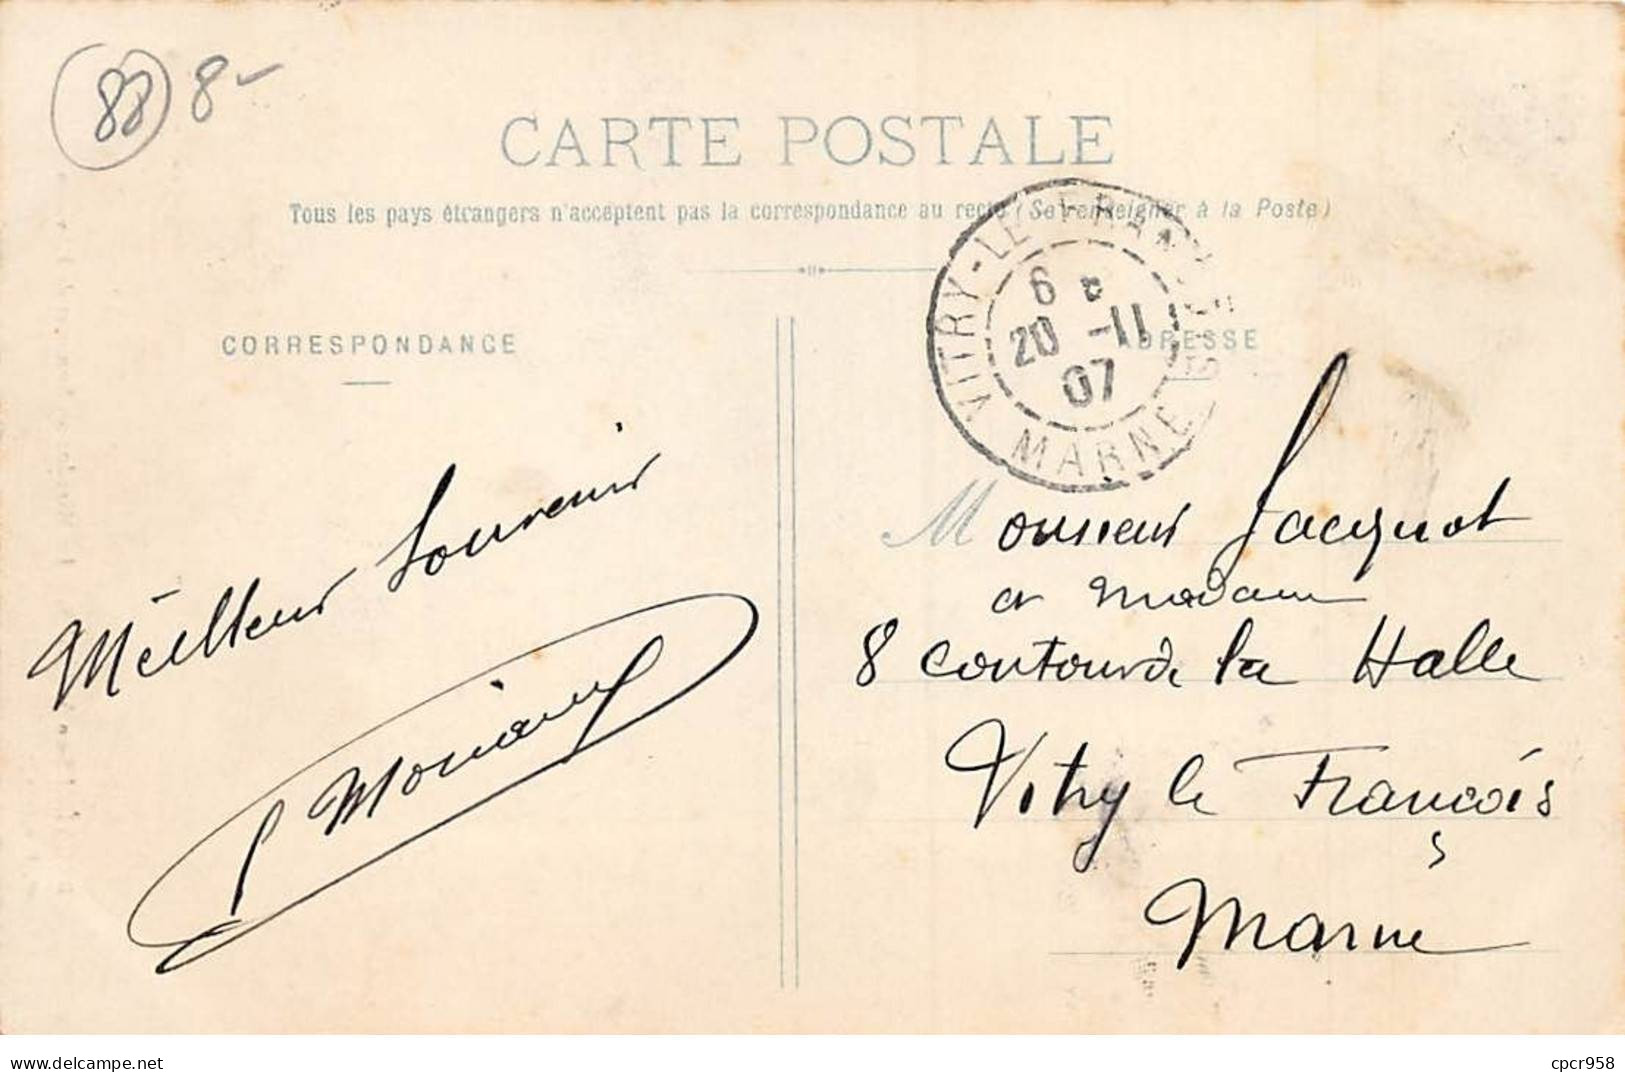 88 8-
CARTE POSTALE
Tous les pays étrangers n'acceptent pas la correspondance au recto (Se renseigner à la Poste)
CORRESPONDANCE
ADRESSE
VITRY-LE-FRANÇOIS
6
20 -11
07
MARNE
Meilleur Souvenir
Monsieur Jacquot
et Madame
8 contour de la Halle
Vitry le François
Marne
delcampe.net
cpcr958